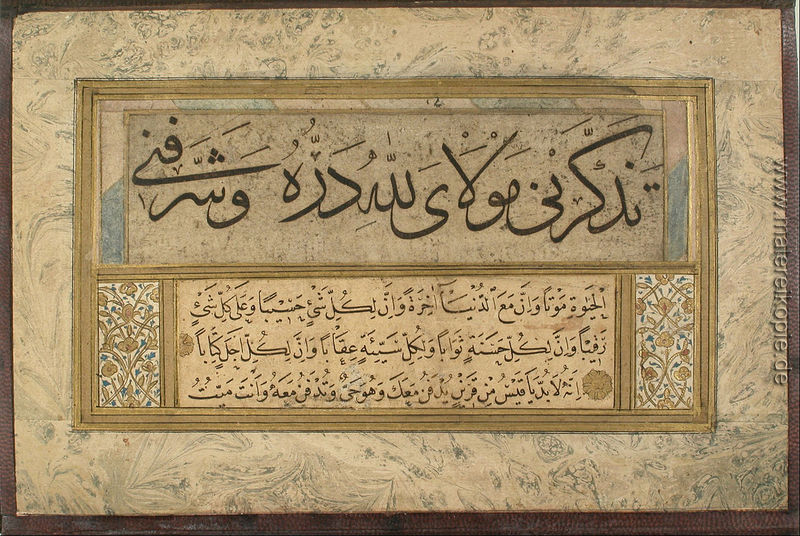 تَذَكَّرَنِي مَوْلَايَ لِلّٰهِ دَرُّهُ وَشَرَّفَنِي
الْحَيٰوةِ مَوْتًا وَاِنَّ مَعَ الدُّنْيَا آخِرَةً وَاِنَّ لِكُلِّ شَيْءٍ حَسِيبًا وَعَلٰى كُلِّ شَيْءٍ
رَقِيبًا وَاِنَّ لِكُلِّ حَسَنَةٍ ثَوَابًا وَلِكُلِّ سَيِّئَةٍ عِقَابًا وَاِنَّ لِكُلِّ اَجَلٍ كِتَابًا
اِنَّهُ لَا بُدَّ يَا قَيْسُ مِنْ قَرِينٍ يُدْفَنُ مَعَكَ وَهُوَ حَيٌّ وَتُدْفَنُ مَعَهُ وَاَنْتَ مَيِّتٌ
www.malereikopie.de